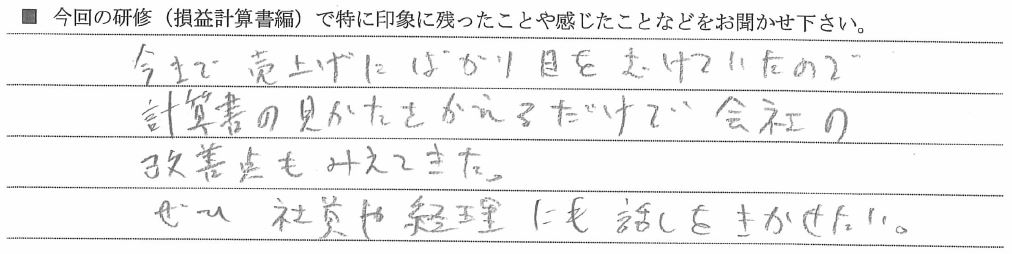 ■ 今回の研修（損益計算書編）で特に印象に残ったことや感じたことなどをお聞かせ下さい。
今まで 売上げにばかり目をむけていたので
計算書の見かたをかえるだけで 会社の
改善点もみえてきた。
ぜひ 社員や経理にも話しをきかせたい。